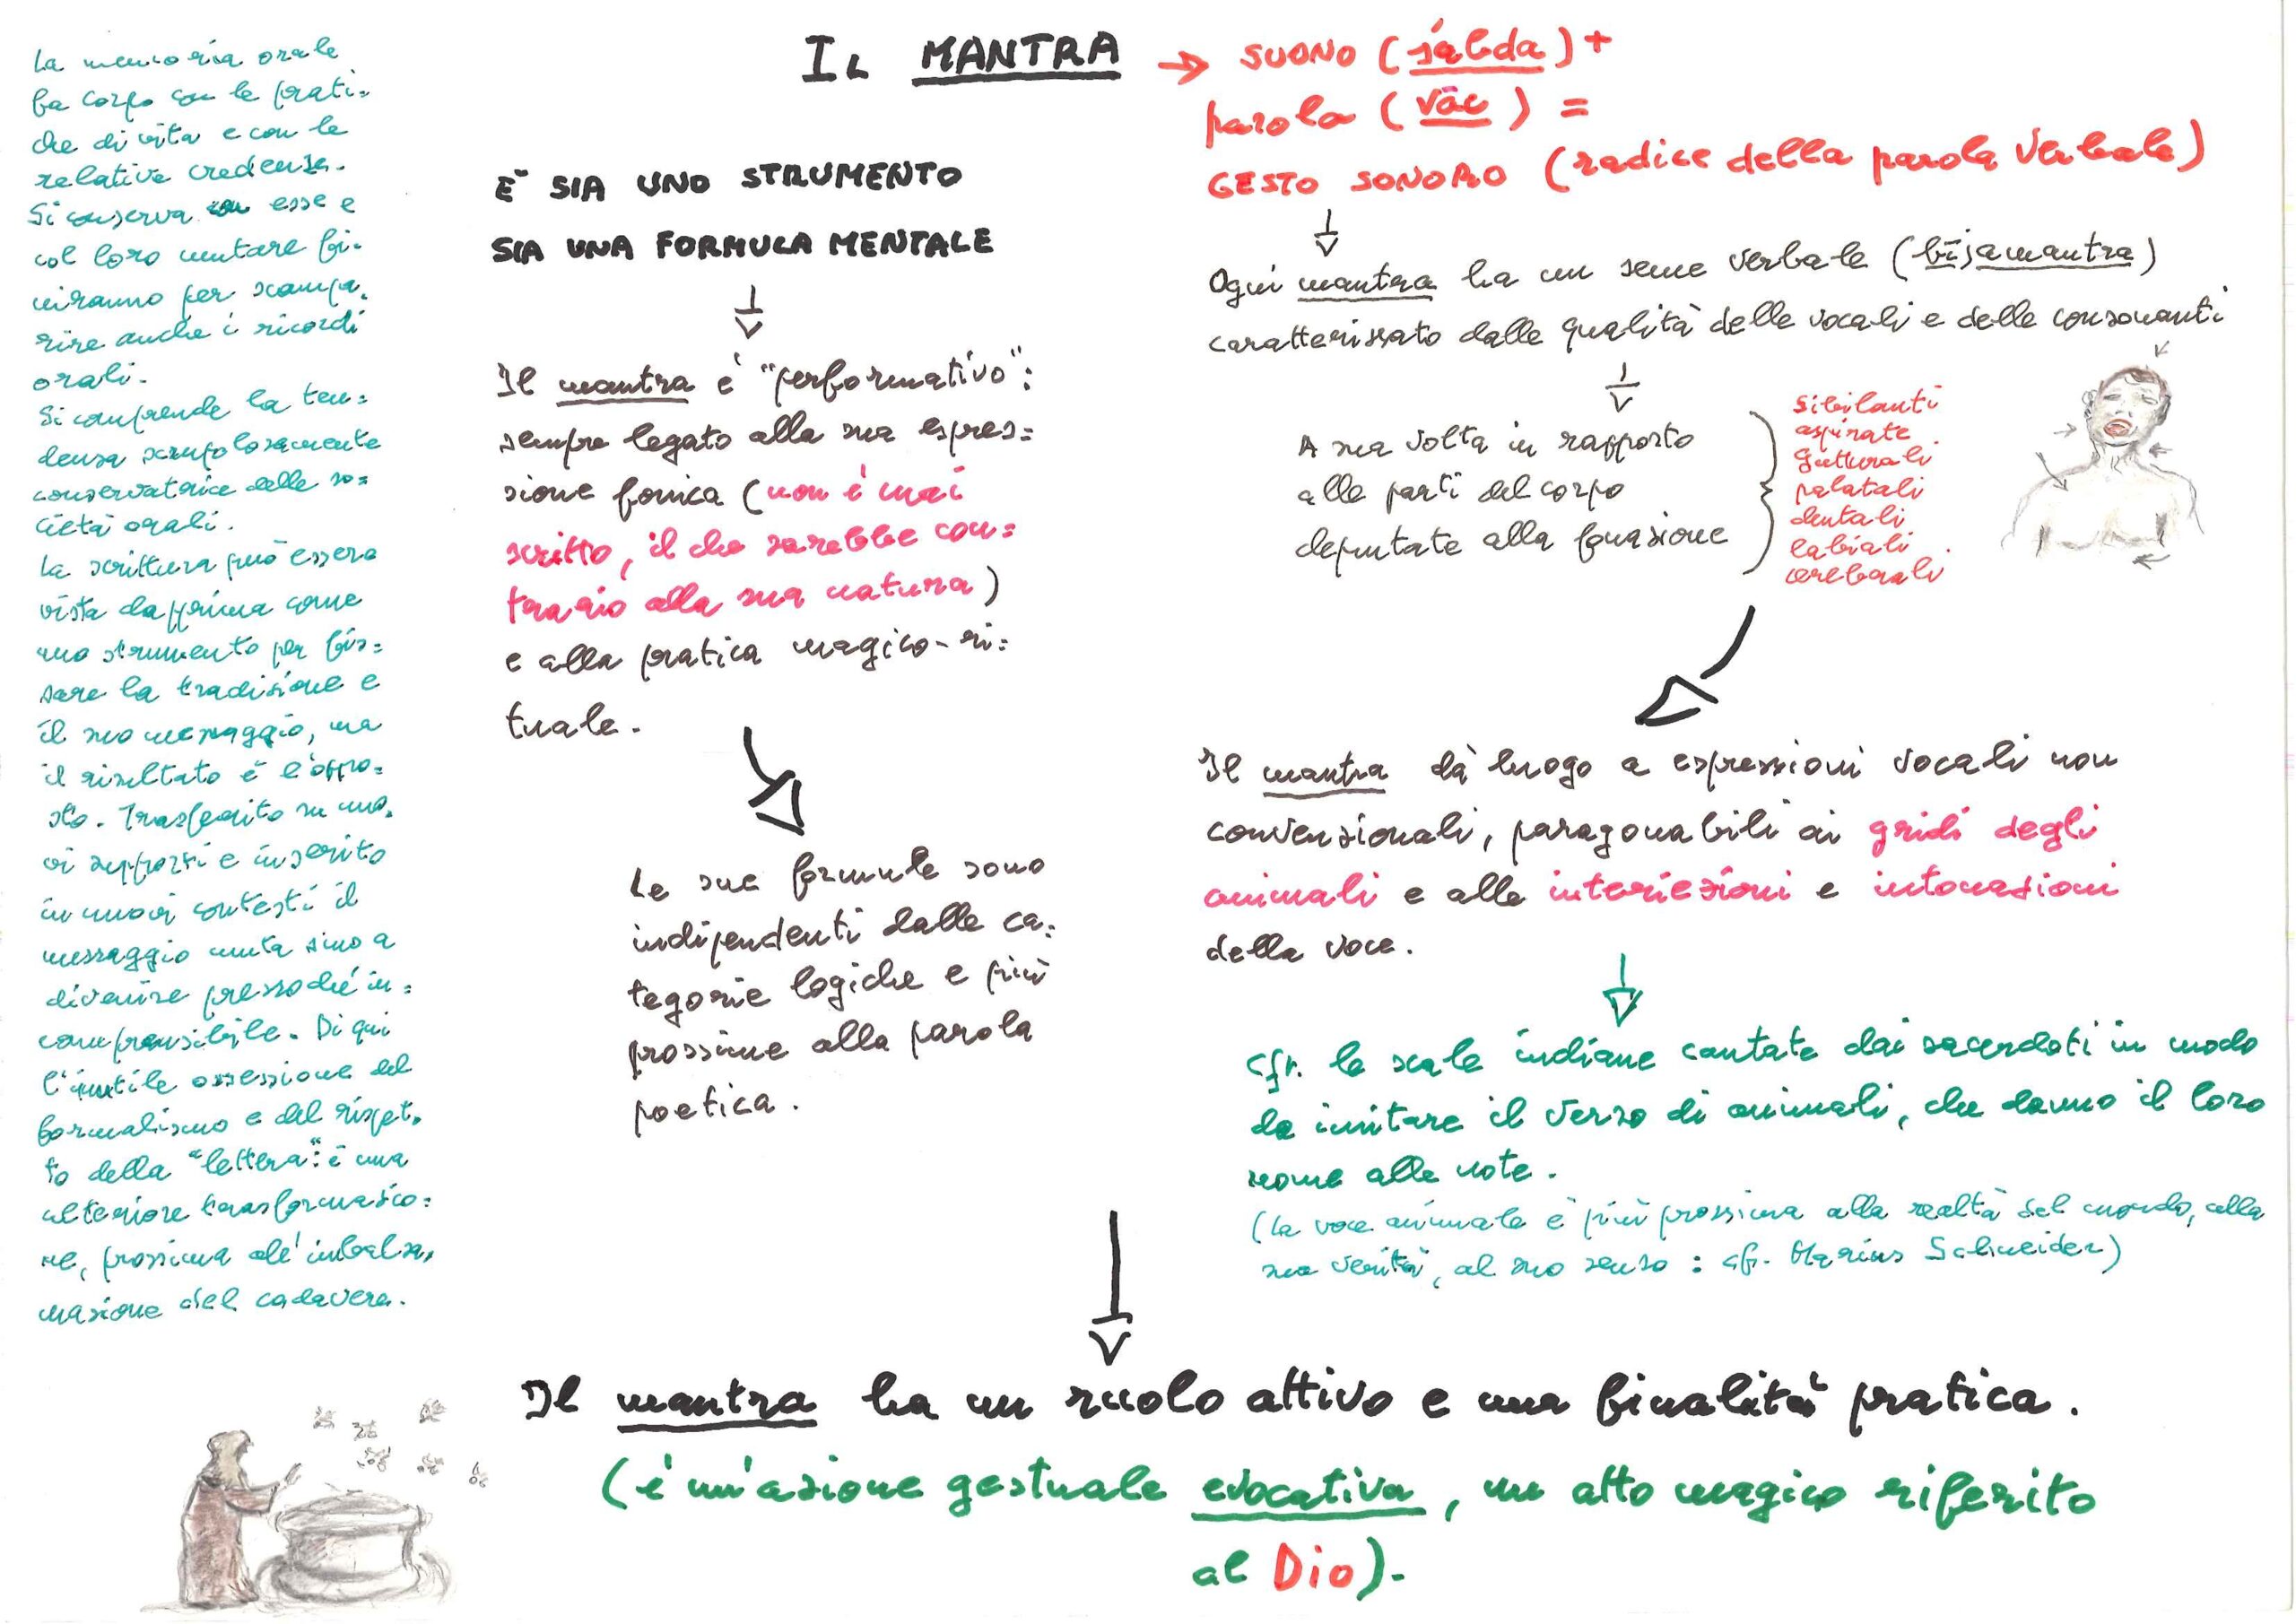 La memoria orale
fa corpo con le prati-
che di vita e con le
relative credenze.
Si conserva con esse e
col loro mutare fi-
niranno per scompa-
rire anche i ricordi
orali.
Si comprende la ten=
denza scrupolosamente
conservatrice delle so=
cietà orali.
La scrittura può essere
vista dapprima come
uno strumento per fis=
sare la tradizione e
il suo messaggio, ma
il risultato è l'oppo=
sto. Trasferito su nuo-
vi supporti e inserito
in nuovi contesti il
messaggio muta sino a
divenire pressoché in=
comprensibile. Di qui
l'inutile ossessione del
formalismo e del rispet-
to della "lettera": è una
ulteriore trasformazio=
ne, prossima all'imbalsa-
mazione del cadavere.
IL MANTRA → SUONO (śabda) +
parola (vāc) =
GESTO SONORO (radice della parola verbale)
E' SIA UNO STRUMENTO
SIA UNA FORMULA MENTALE
Il mantra è "performativo":
sempre legato alla sua espres=
sione fonica (non è mai
scritto, il che sarebbe con=
trario alla sua natura)
e alla pratica magico-ri=
tuale.
Le sue formule sono
indipendenti dalle ca=
tegorie logiche e più
prossime alla parola
poetica.
Ogni mantra ha un seme verbale (bījamantra)
caratterizzato dalle qualità delle vocali e delle consonanti
A sua volta in rapporto
alle parti del corpo
deputate alla fonazione
sibilanti
aspirate
gutturali
palatali
dentali
labiali
cerebrali
Il mantra dà luogo a espressioni vocali non
convenzionali, paragonabili ai gridi degli
animali e alle interiezioni e intonazioni
della voce.
cfr. le scale indiane cantate dai sacerdoti in modo
da imitare il verso di animali, che danno il loro
nome alle note.
(la voce animale è più prossima alla realtà del mondo, alla
sua verità, al suo senso: cfr. Marius Schneider)
Il mantra ha un ruolo attivo e una finalità pratica.
(è un'azione gestuale evocativa, un atto magico riferito
al Dio).